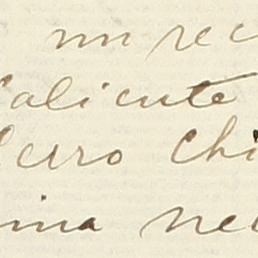 un rec
Caliente
Cerro Chi
ina ne